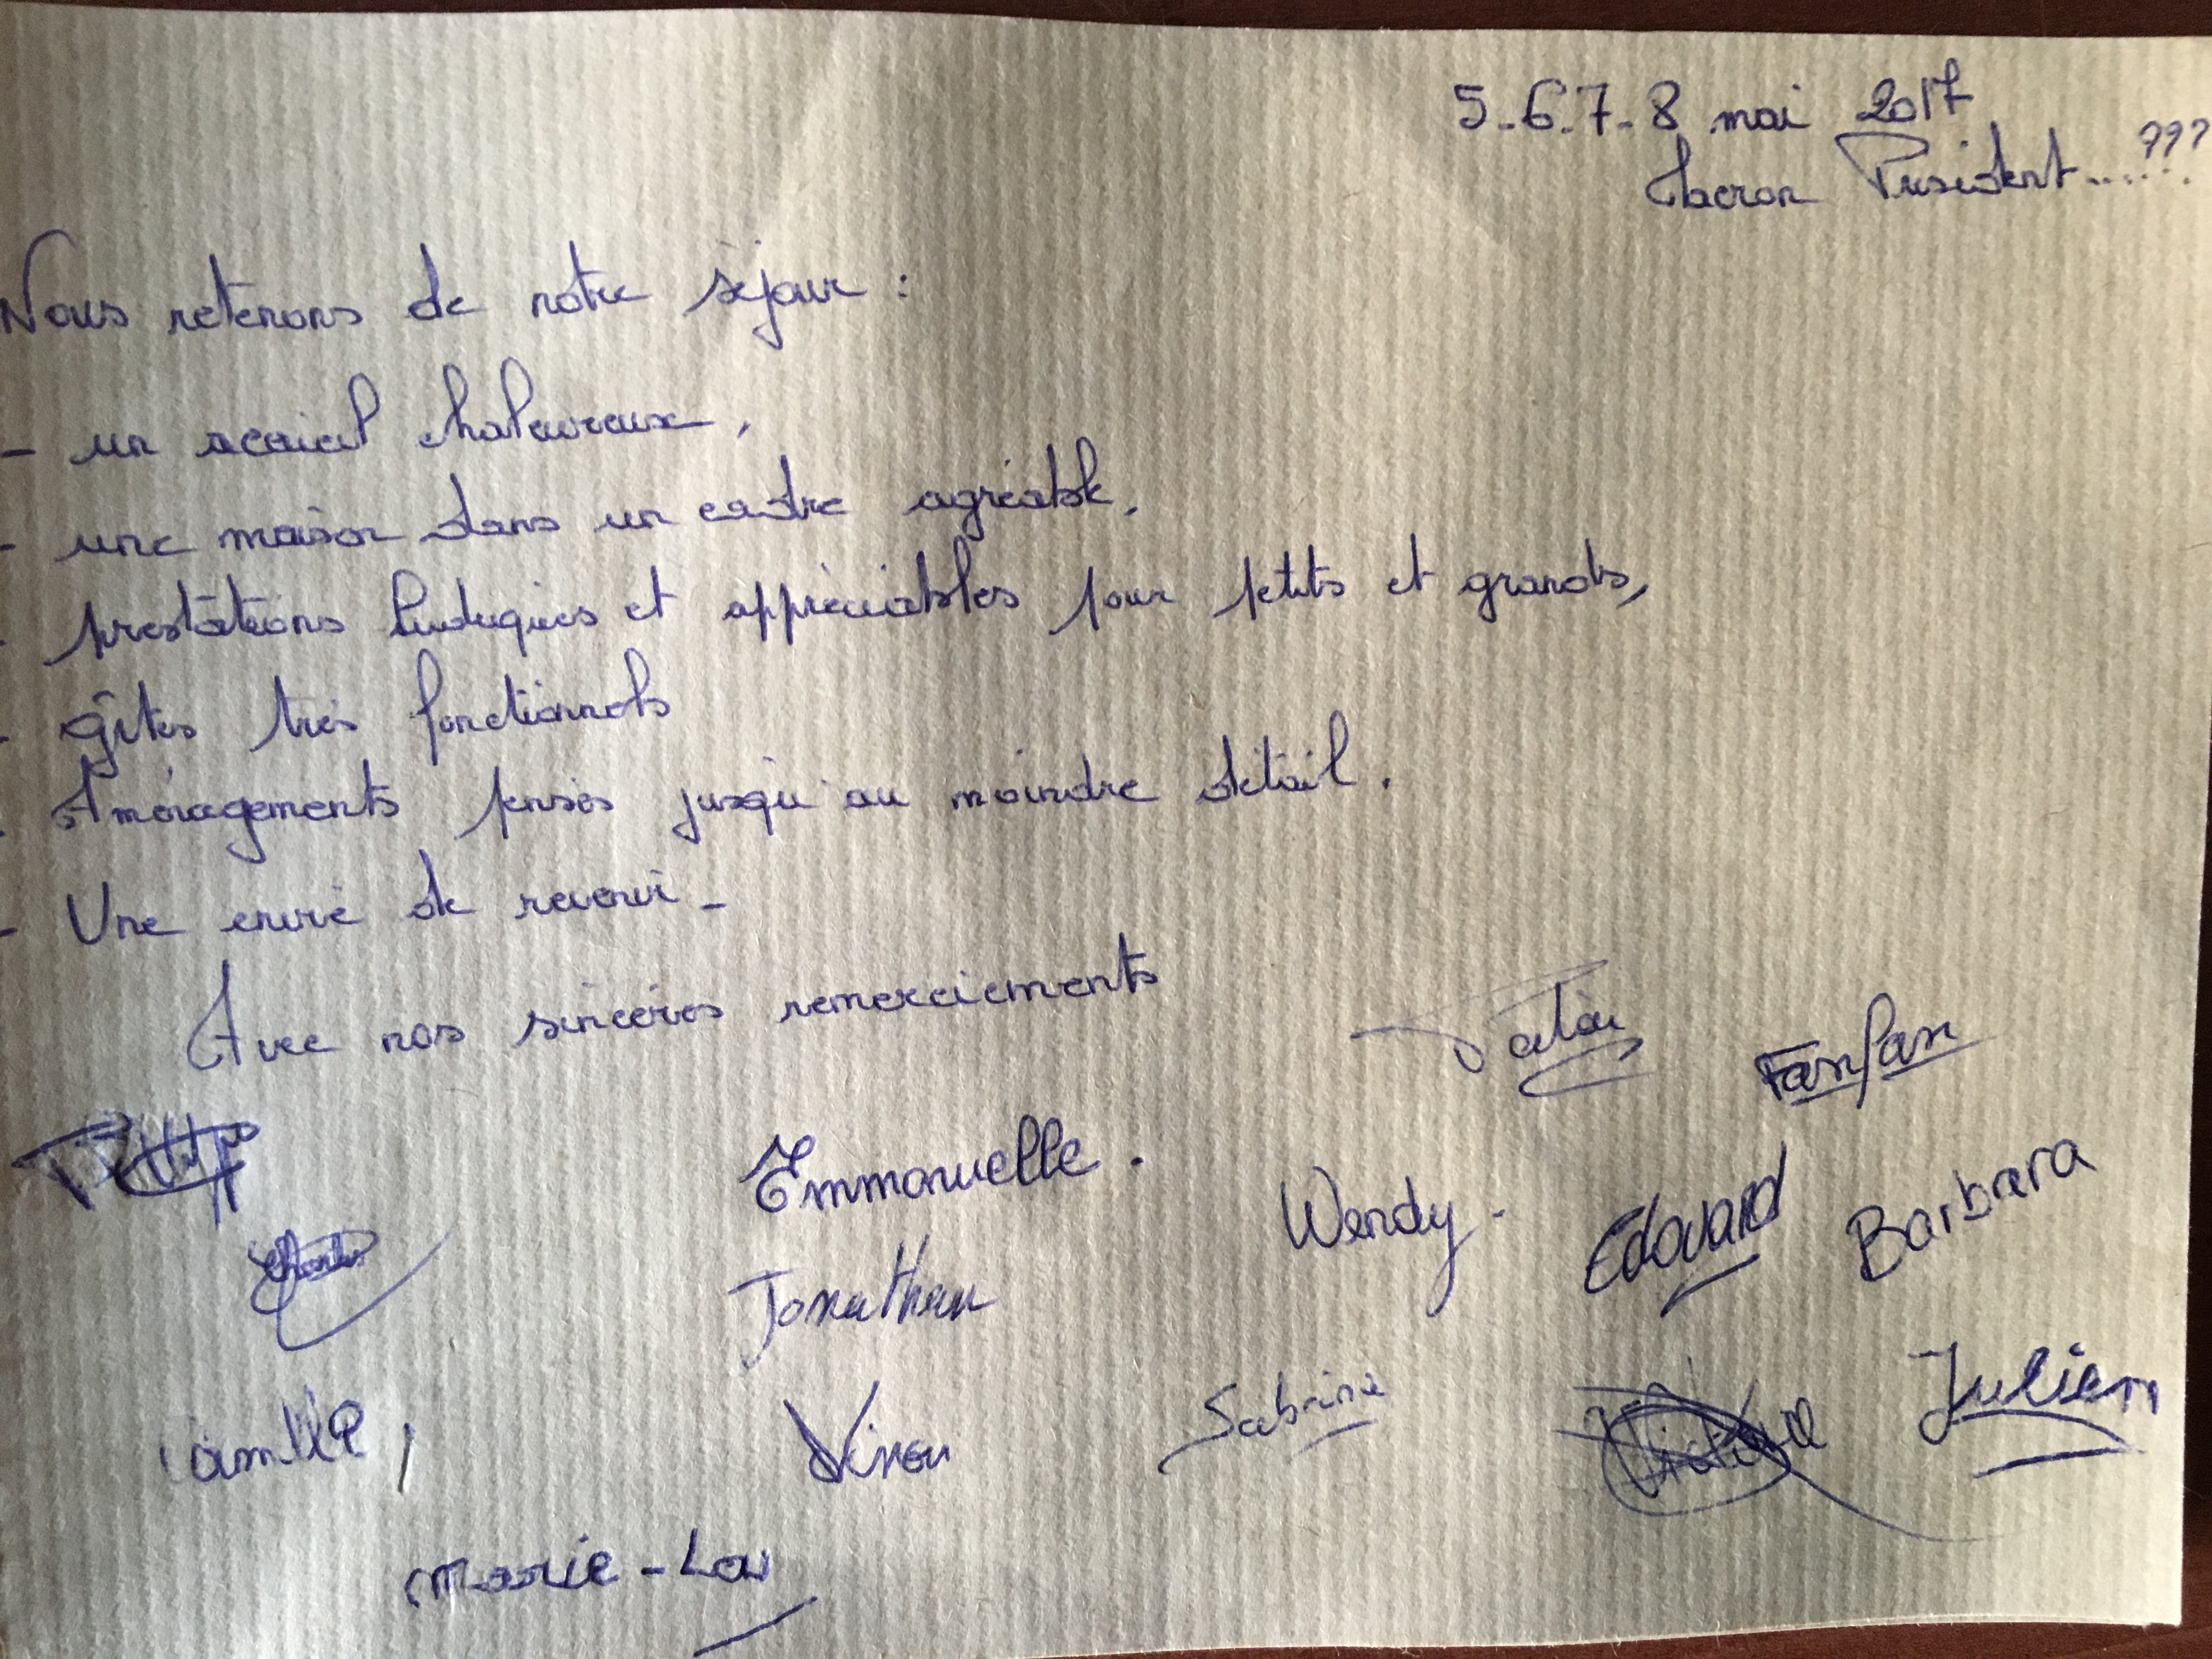 5-6.7-8 mai 2017
Macron Président......???
Nous retenons de notre séjour :
- un accueil chaleureux,
- une maison dans un cadre agréable,
- prestations ludiques et appréciables pour petits et grands,
- gîtes très fonctionnels
- Aménagements pensés jusqu'au moindre détail.
- Une envie de revenir -
Avec nos sincères remerciements
Fanfan
Emmanuelle.
Wendy.
Edouard
Barbara
Jonathan
Camille,
Sabrina
Julien
Marie-Lou